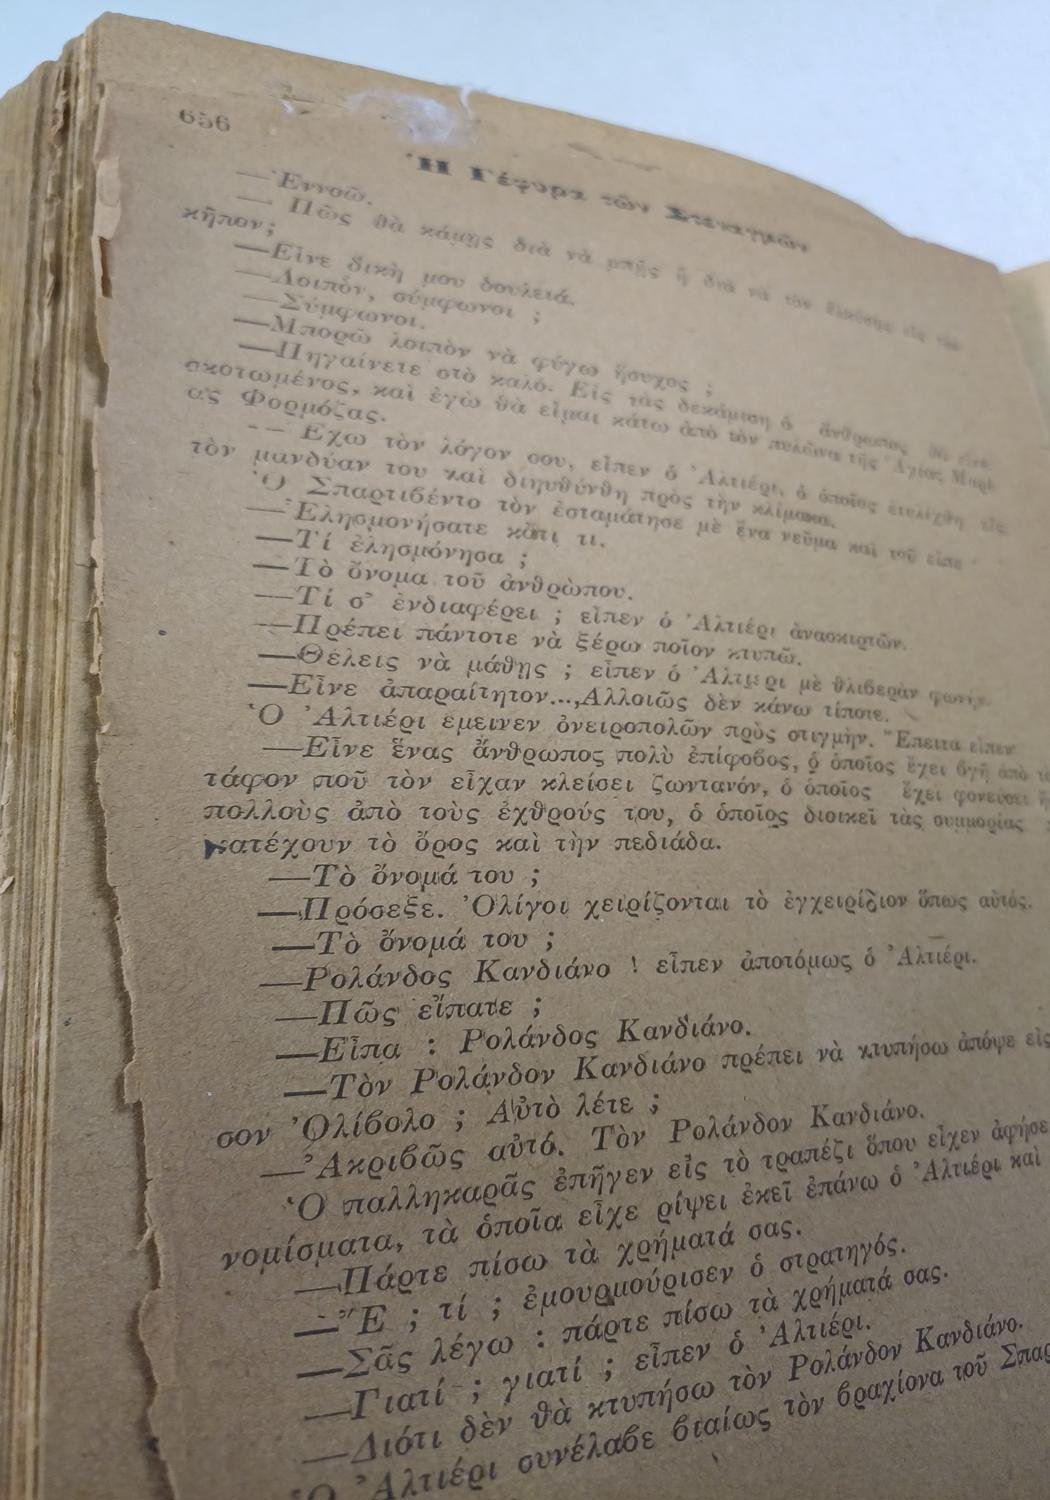 656
Ἡ Γέφυρα τῶν Στεναγμῶν
—Ἐννοῶ.
— Πῶς θὰ κάμῃς διὰ νὰ μπῇς ἢ διὰ νὰ τὸν
κῆπον;
—Εἶνε δικὴ μου δουλειά.
—Λοιπὸν, σύμφωνοι ;
—Σύμφωνοι.
—Μπορῶ λοιπὸν νὰ φύγω ἥσυχος ;
—Πηγαίνετε στὸ καλό. Εἰς τὰς δεκάμιση ὁ ἄνθρωπος θὰ εἶνε
σκοτωμένος, καὶ ἐγὼ θὰ εἶμαι κάτω ἀπὸ τὸν πυλῶνα τῆς Ἁγίας Μαρί
ας Φορμόζας.
—Ἔχω τὸν λόγον σου, εἶπεν ὁ Ἀλτιέρι, ὁ ὁποῖος ἐτυλίχθη εἰς
τὸν μανδύαν του καὶ διηυθύνθη πρὸς τὴν κλίμακα.
Ὁ Σπαρτιβέντο τὸν ἐσταμάτησε μὲ ἕνα νεῦμα καὶ τοῦ εἶπε
—Ἐλησμονήσατε κἄτι τι.
—Τί ἐλησμόνησα ;
—Τὸ ὄνομα τοῦ ἀνθρώπου.
—Τί σ' ἐνδιαφέρει ; εἶπεν ὁ Ἀλτιέρι ἀνασκιρτῶν.
—Πρέπει πάντοτε νὰ ξέρω ποῖον κτυπῶ.
—Θέλεις νὰ μάθῃς ; εἶπεν ὁ Ἀλτιέρι μὲ θλιβερὰν φωνήν.
—Εἶνε ἀπαραίτητον...,Αλλοιῶς δὲν κάνω τίποτε.
Ὁ Ἀλτιέρι ἔμεινεν ὀνειροπολῶν πρὸς στιγμὴν. Ἔπειτα εἶπεν
—Εἶνε ἕνας ἄνθρωπος πολὺ ἐπίφοβος, ὁ ὁποῖος ἔχει βγῆ ἀπὸ τὸ
τάφον ποῦ τὸν εἶχαν κλείσει ζωντανόν, ὁ ὁποῖος ἔχει φονεύσει ἤ
πολλοὺς ἀπὸ τοὺς ἐχθρούς του, ὁ ὁποῖος διοικεῖ τὰς συμμορίας
κατέχουν τὸ ὄρος καὶ τὴν πεδιάδα.
—Τὸ ὄνομά του ;
—Πρόσεξε. Ὀλίγοι χειρίζονται τὸ ἐγχειρίδιον ὅπως αὐτός.
—Τὸ ὄνομά του ;
—Ρολάνδος Κανδιάνο ! εἶπεν ἀποτόμως ὁ Ἀλτιέρι.
—Πῶς εἴπατε ;
—Εἶπα : Ρολάνδος Κανδιάνο.
—Τὸν Ρολάνδον Κανδιάνο πρέπει νὰ κτυπήσω ἀπόψε εἰς
σον Ὀλίβολο ; Αὐτὸ λέτε ;
—Ἀκριβῶς αὐτό. Τὸν Ρολάνδον Κανδιάνο.
Ὁ παλληκαρᾶς ἐπῆγεν εἰς τὸ τραπέζι ὅπου εἶχεν ἀφήσε
νομίσματα, τὰ ὁποῖα εἶχε ρίψει ἐκεῖ ἐπάνω ὁ Ἀλτιέρι καὶ
—Πάρτε πίσω τὰ χρήματά σας.
—Ἒ ; τί ; ἐμουρμούρισεν ὁ στρατηγός.
—Σᾶς λέγω : πάρτε πίσω τὰ χρήματά σας.
—Γιατί ; γιατί ; εἶπεν ὁ Ἀλτιέρι.
—Διότι δὲν θὰ κτυπήσω τὸν Ρολάνδον Κανδιάνο.
Ὁ Ἀλτιέρι συνέλαβε βιαίως τὸν βραχίονα τοῦ Σπαρ